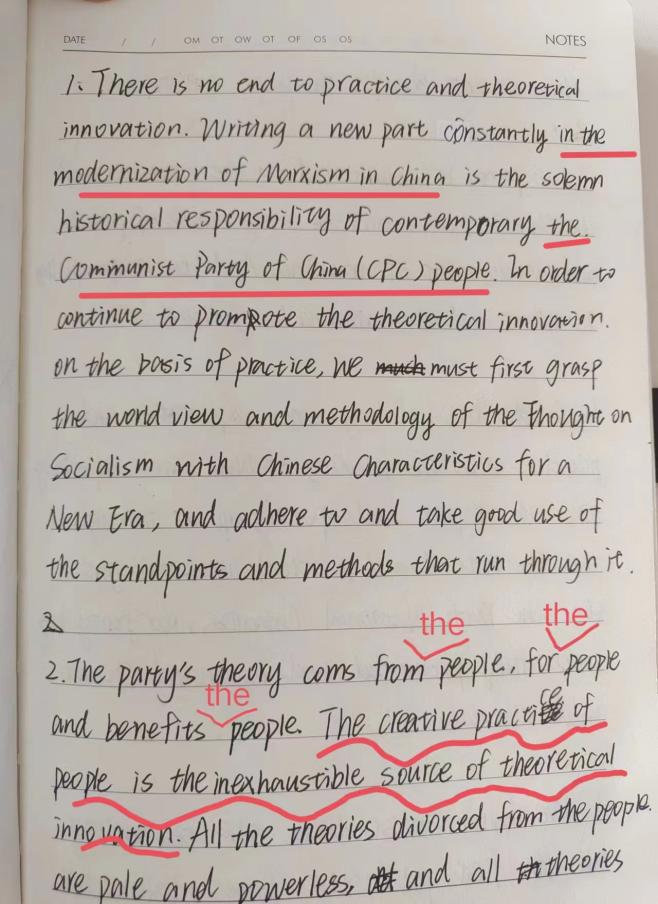 DATE / / OM OT OW OT OF OS OS NOTES
1. There is no end to practice and theoretical
innovation. Writing a new part constantly in the
modernization of Marxism in China is the solemn
historical responsibility of contemporary the
Communist Party of China (CPC) people. In order to
continue to prompote the theoretical innovation.
on the basis of practice, we much must first grasp
the world view and methodology of the Thought on
Socialism with Chinese Characteristics for a
New Era, and adhere to and take good use of
the standpoints and methods that run through it.
2
the the
2. The party's theory coms from people, for people
the
and benefits people. The creative practice of
people is the inexhaustible source of theoretical
innovation. All the theories divorced from the people.
are pale and powerless, and all th theories